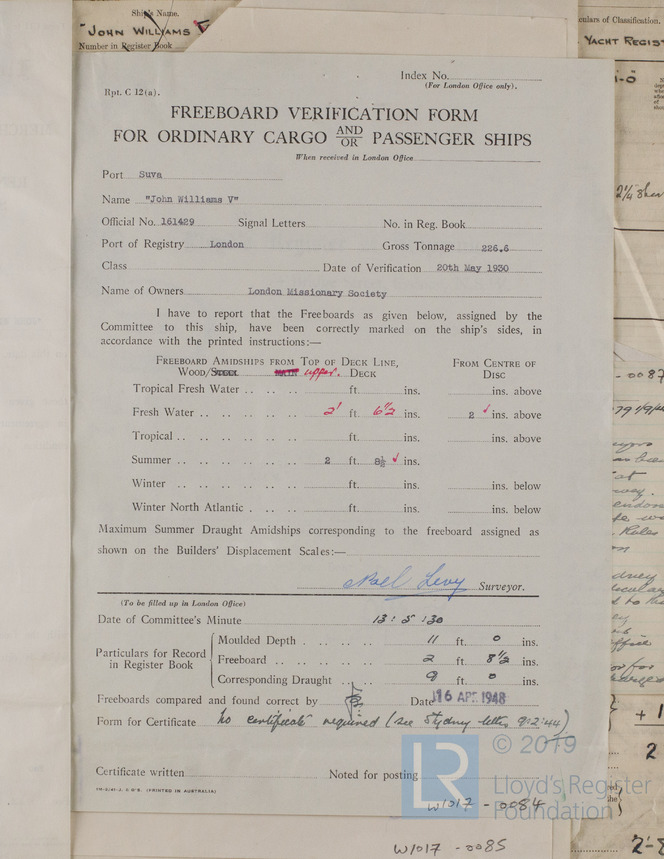 Ship's Name.
"JOHN WILLIAMS V
Number in Register Book
culars of Classification.
YACHT REGIST
Index No.
(For London Office only).
Rpt. C 12(a).
FREEBOARD VERIFICATION FORM
FOR ORDINARY CARGO AND/OR PASSENGER SHIPS
When received in London Office
Port Suva
Name "John Williams V"
Official No. 161429 Signal Letters No. in Reg. Book
Port of Registry London Gross Tonnage 226.6
Class Date of Verification 20th May 1930
Name of Owners London Missionary Society
I have to report that the Freeboards as given below, assigned by the
Committee to this ship, have been correctly marked on the ship's sides, in
accordance with the printed instructions:—
FREEBOARD AMIDSHIPS FROM TOP OF DECK LINE, FROM CENTRE OF
WOOD/STEEL MAIN upper. DECK DISC
Tropical Fresh Water .. .. .. ft. ins. ins. above
Fresh Water .. .. .. .. .. 2' ft. 6½ ins. 2 ins. above
Tropical .. .. .. .. .. .. ft. ins. ins. above
Summer .. .. .. .. .. .. 2 ft. 8½ ins.
Winter .. .. .. .. .. ft. ins. ins. below
Winter North Atlantic . .. .. ft. ins. ins. below
Maximum Summer Draught Amidships corresponding to the freeboard assigned as
shown on the Builders' Displacement Scales:—
Noel Levy Surveyor.
(To be filled up in London Office)
Date of Committee's Minute 13:5:30
Particulars for Record in Register Book
Moulded Depth . .. .. .. 11 ft. 0 ins.
Freeboard .. .. .. .. .. 2 ft. 8½ ins.
Corresponding Draught .. .. 9 ft. 0 ins.
Freeboards compared and found correct by Date 16 APR 1948
Form for Certificate No certificate required (see Sydney letter 9:2:44)
Certificate written Noted for posting
(PRINTED IN AUSTRALIA)
© 2019
LR
Lloyd's Register
Foundation
W1017 - 0084
W1017 - 0085
2¼
- 0087
+ 1
2